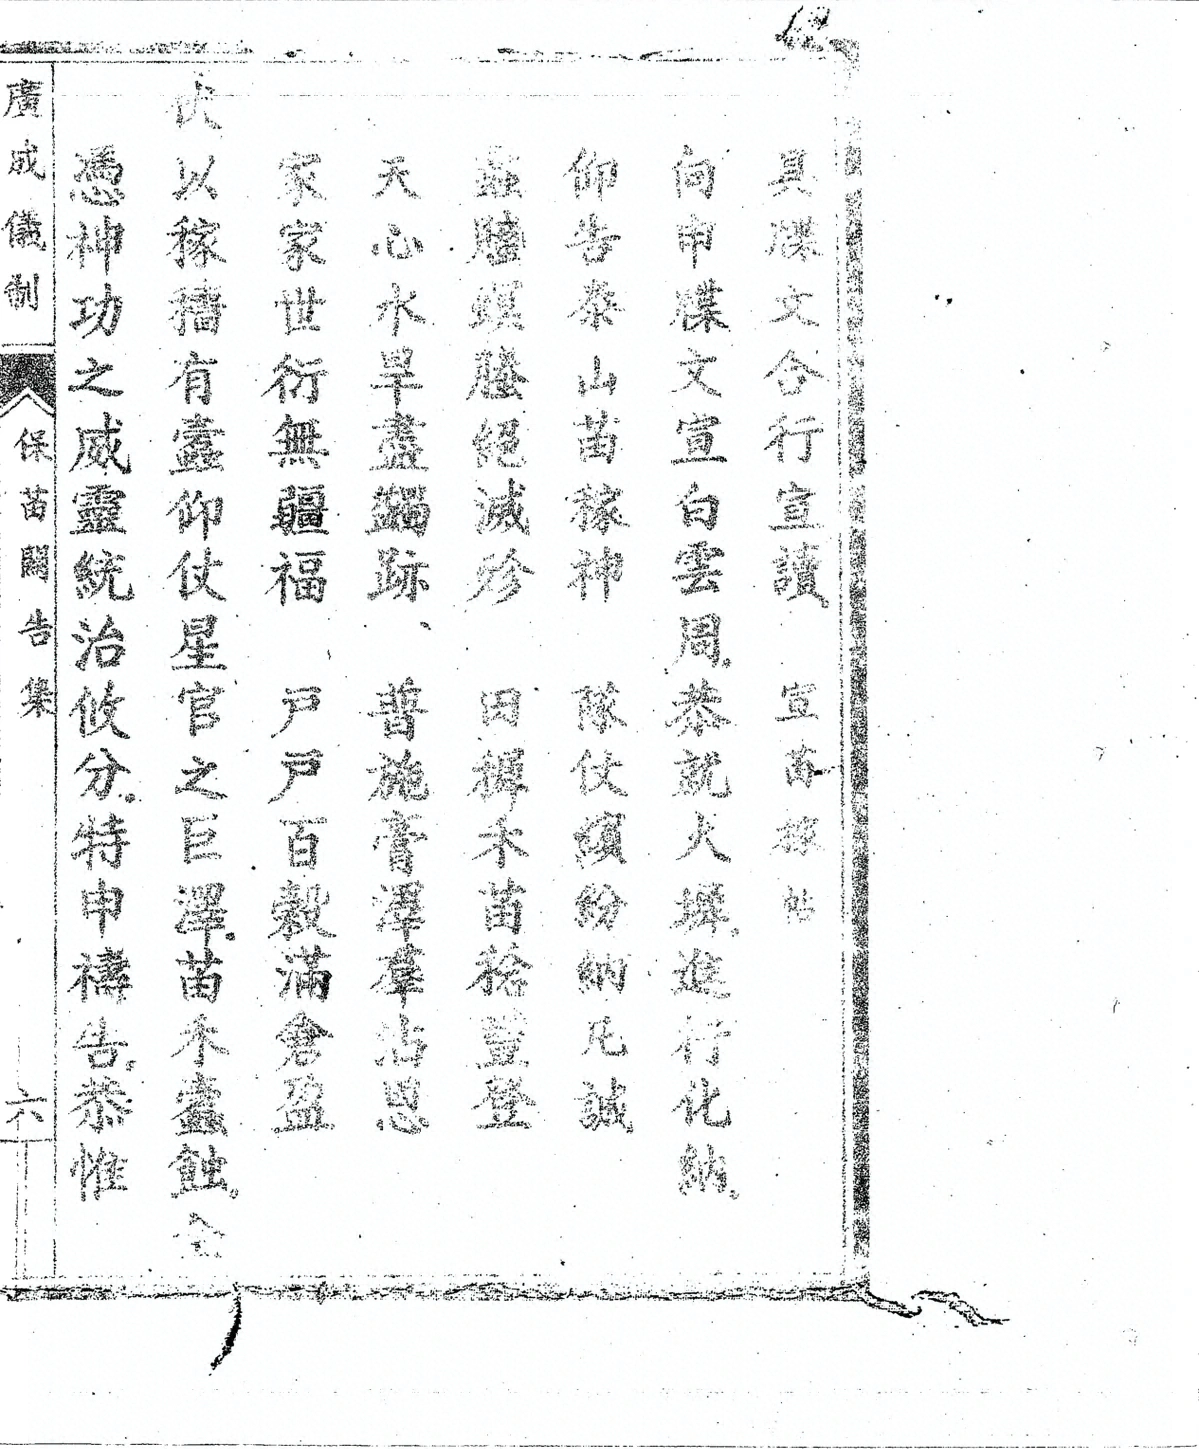 具牒文合行宣讀 宣苗稼帖
向申牒文宣白雲周恭就火墀進行化納
仰告泰山苗稼神 隊仗繽紛納凡誠
蟊螣螟螣絕滅殄 田墀禾苗稔豐登
天心水旱盡蠲跡 普施膏澤羣沾恩
家家世衍無疆福 戶戶百穀滿倉盈
伏以稼穡有蠹仰仗星官之巨澤苗禾蠹蝕全
憑神功之威靈統治攸分特申禱告恭惟
廣成儀制 保苗關告集 六